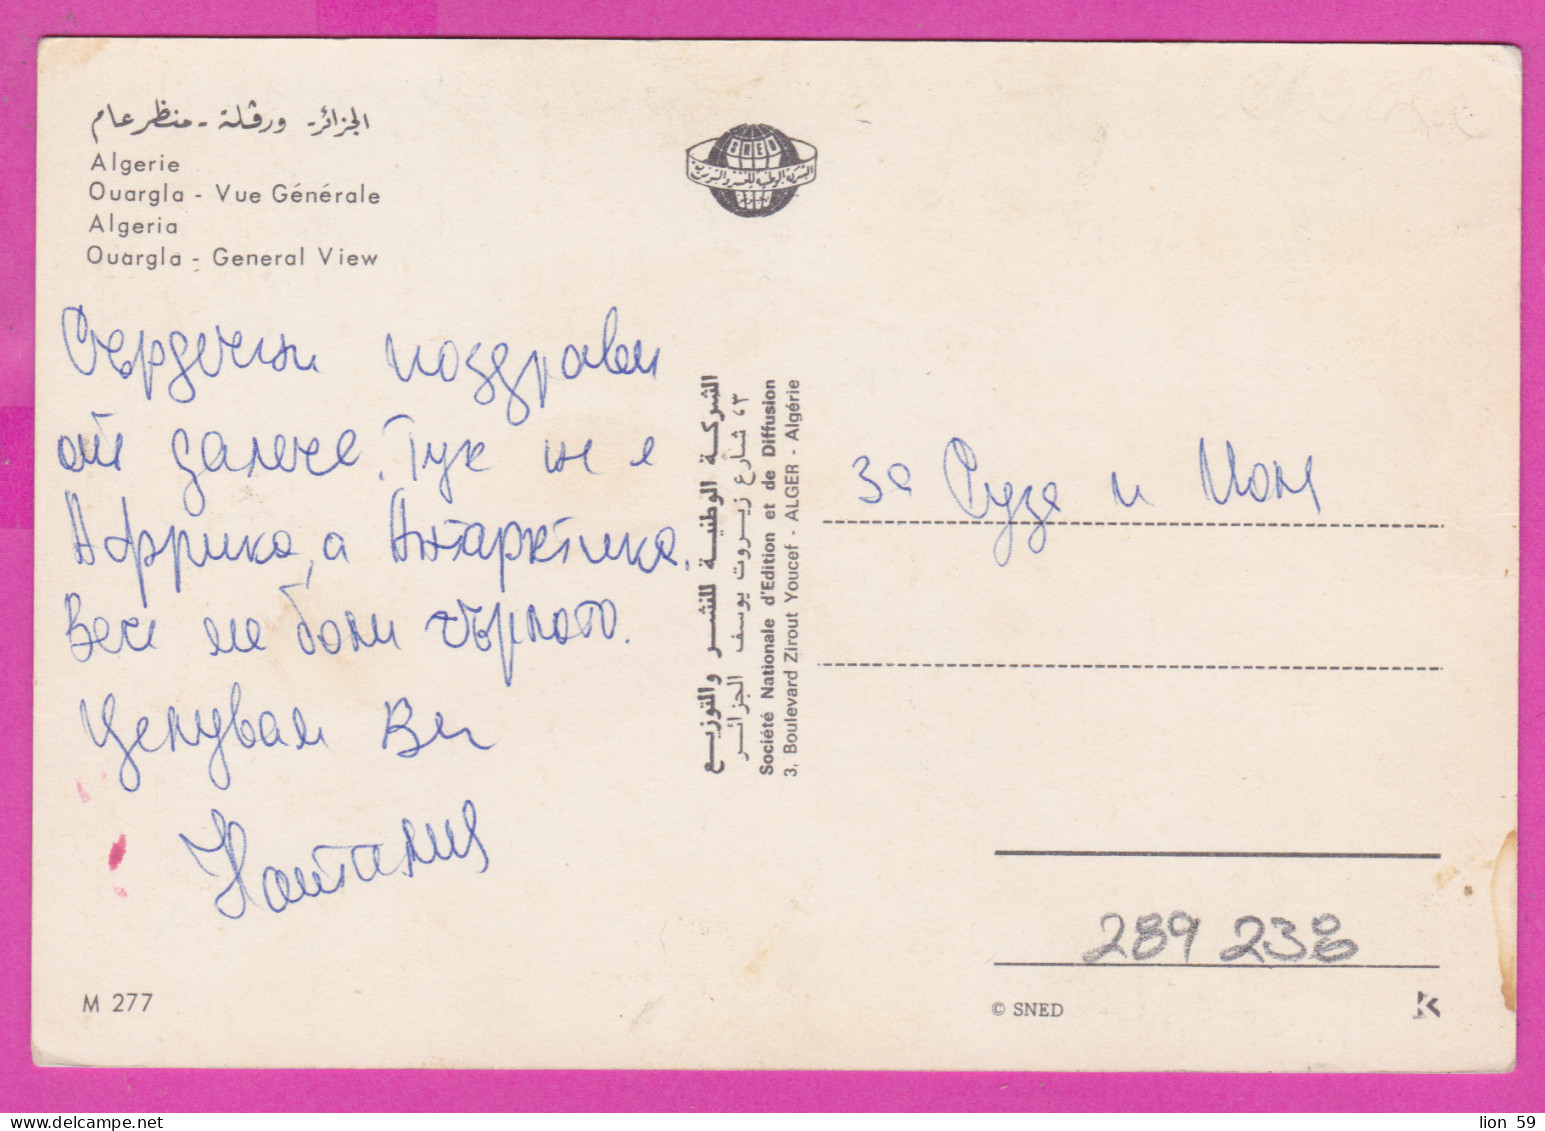 الجزائر - ورقلة - منظر عام
Algerie
Ouargla - Vue Générale
Algeria
Ouargla - General View
Сърдечни поздрави
от далече. Тук не е
Африка, а Антарктика.
Вече ме боли гърлото.
Целувам Ви
Наталия
M 277
SNED
الشركة الوطنية للنشر والتوزيع
الشركة الوطنية للنشر والتوزيع
٣، شارع زيروت يوسف الجزائر
Société Nationale d'Edition et de Diffusion
3, Boulevard Zirout Youcef - ALGER - Algérie
За Сузе и Иони
289 238
© SNED
K
lion 59